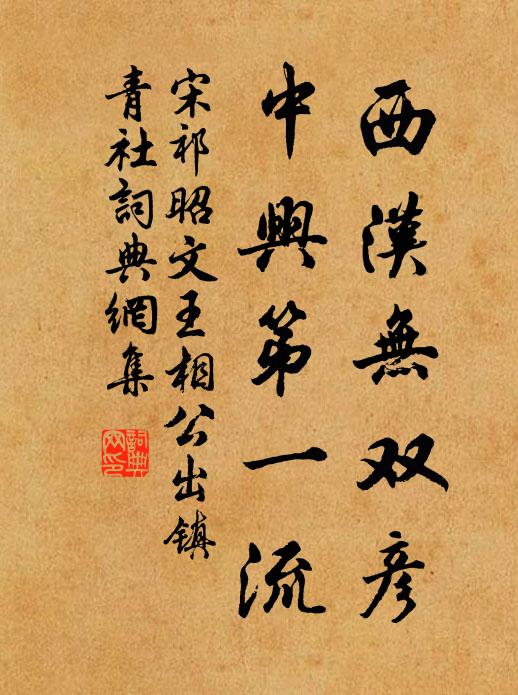 西漢無双彦
中興第一流
宋祁昭文王相公出鎮
青社詞典網集
詞典網印